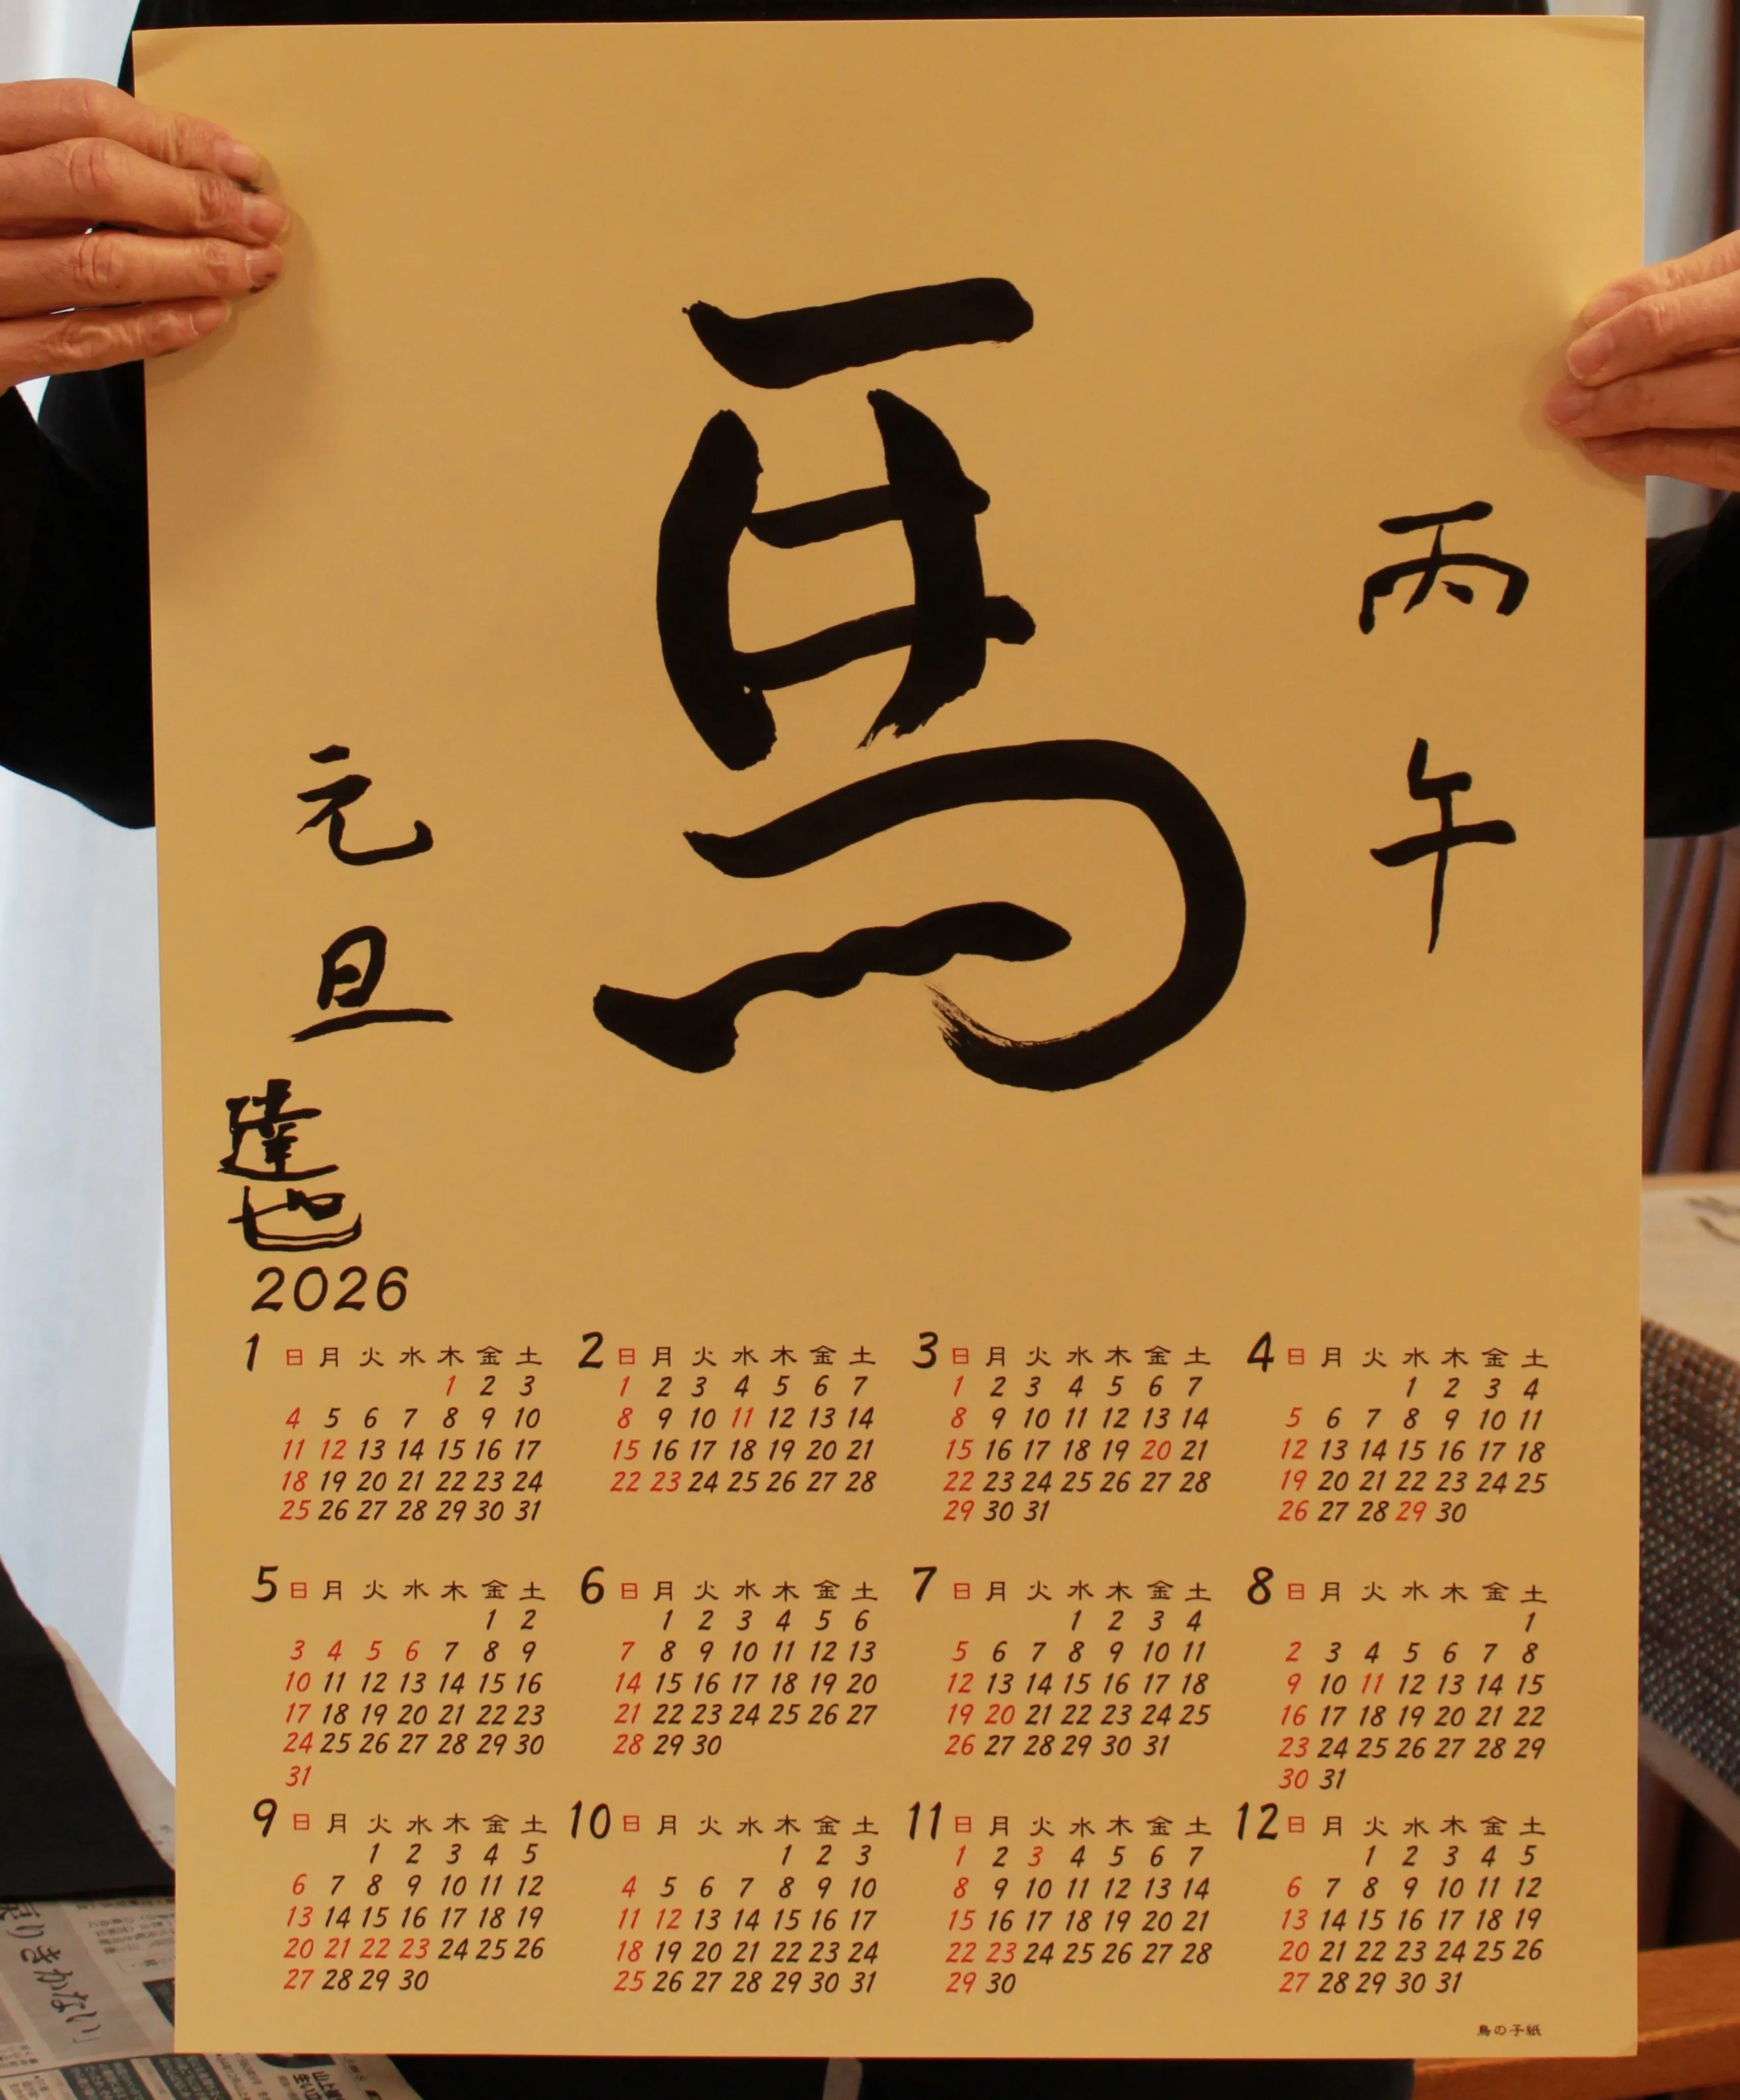 馬
丙午
元旦
達也
2026
1 日 月 火 水 木 金 土
1 2 3
4 5 6 7 8 9 10
11 12 13 14 15 16 17
18 19 20 21 22 23 24
25 26 27 28 29 30 31
2 日 月 火 水 木 金 土
1 2 3 4 5 6 7
8 9 10 11 12 13 14
15 16 17 18 19 20 21
22 23 24 25 26 27 28
3 日 月 火 水 木 金 土
1 2 3 4 5 6 7
8 9 10 11 12 13 14
15 16 17 18 19 20 21
22 23 24 25 26 27 28
29 30 31
4 日 月 火 水 木 金 土
1 2 3 4
5 6 7 8 9 10 11
12 13 14 15 16 17 18
19 20 21 22 23 24 25
26 27 28 29 30
5 日 月 火 水 木 金 土
1 2
3 4 5 6 7 8 9
10 11 12 13 14 15 16
17 18 19 20 21 22 23
24 25 26 27 28 29 30
31
6 日 月 火 水 木 金 土
1 2 3 4 5 6
7 8 9 10 11 12 13
14 15 16 17 18 19 20
21 22 23 24 25 26 27
28 29 30
7 日 月 火 水 木 金 土
1 2 3 4
5 6 7 8 9 10 11
12 13 14 15 16 17 18
19 20 21 22 23 24 25
26 27 28 29 30 31
8 日 月 火 水 木 金 土
1
2 3 4 5 6 7 8
9 10 11 12 13 14 15
16 17 18 19 20 21 22
23 24 25 26 27 28 29
30 31
9 日 月 火 水 木 金 土
1 2 3 4 5
6 7 8 9 10 11 12
13 14 15 16 17 18 19
20 21 22 23 24 25 26
27 28 29 30
10 日 月 火 水 木 金 土
1 2 3
4 5 6 7 8 9 10
11 12 13 14 15 16 17
18 19 20 21 22 23 24
25 26 27 28 29 30 31
11 日 月 火 水 木 金 土
1 2 3 4 5 6 7
8 9 10 11 12 13 14
15 16 17 18 19 20 21
22 23 24 25 26 27 28
29 30
12 日 月 火 水 木 金 土
1 2 3 4 5
6 7 8 9 10 11 12
13 14 15 16 17 18 19
20 21 22 23 24 25 26
27 28 29 30 31
鳥の子紙
りきかない